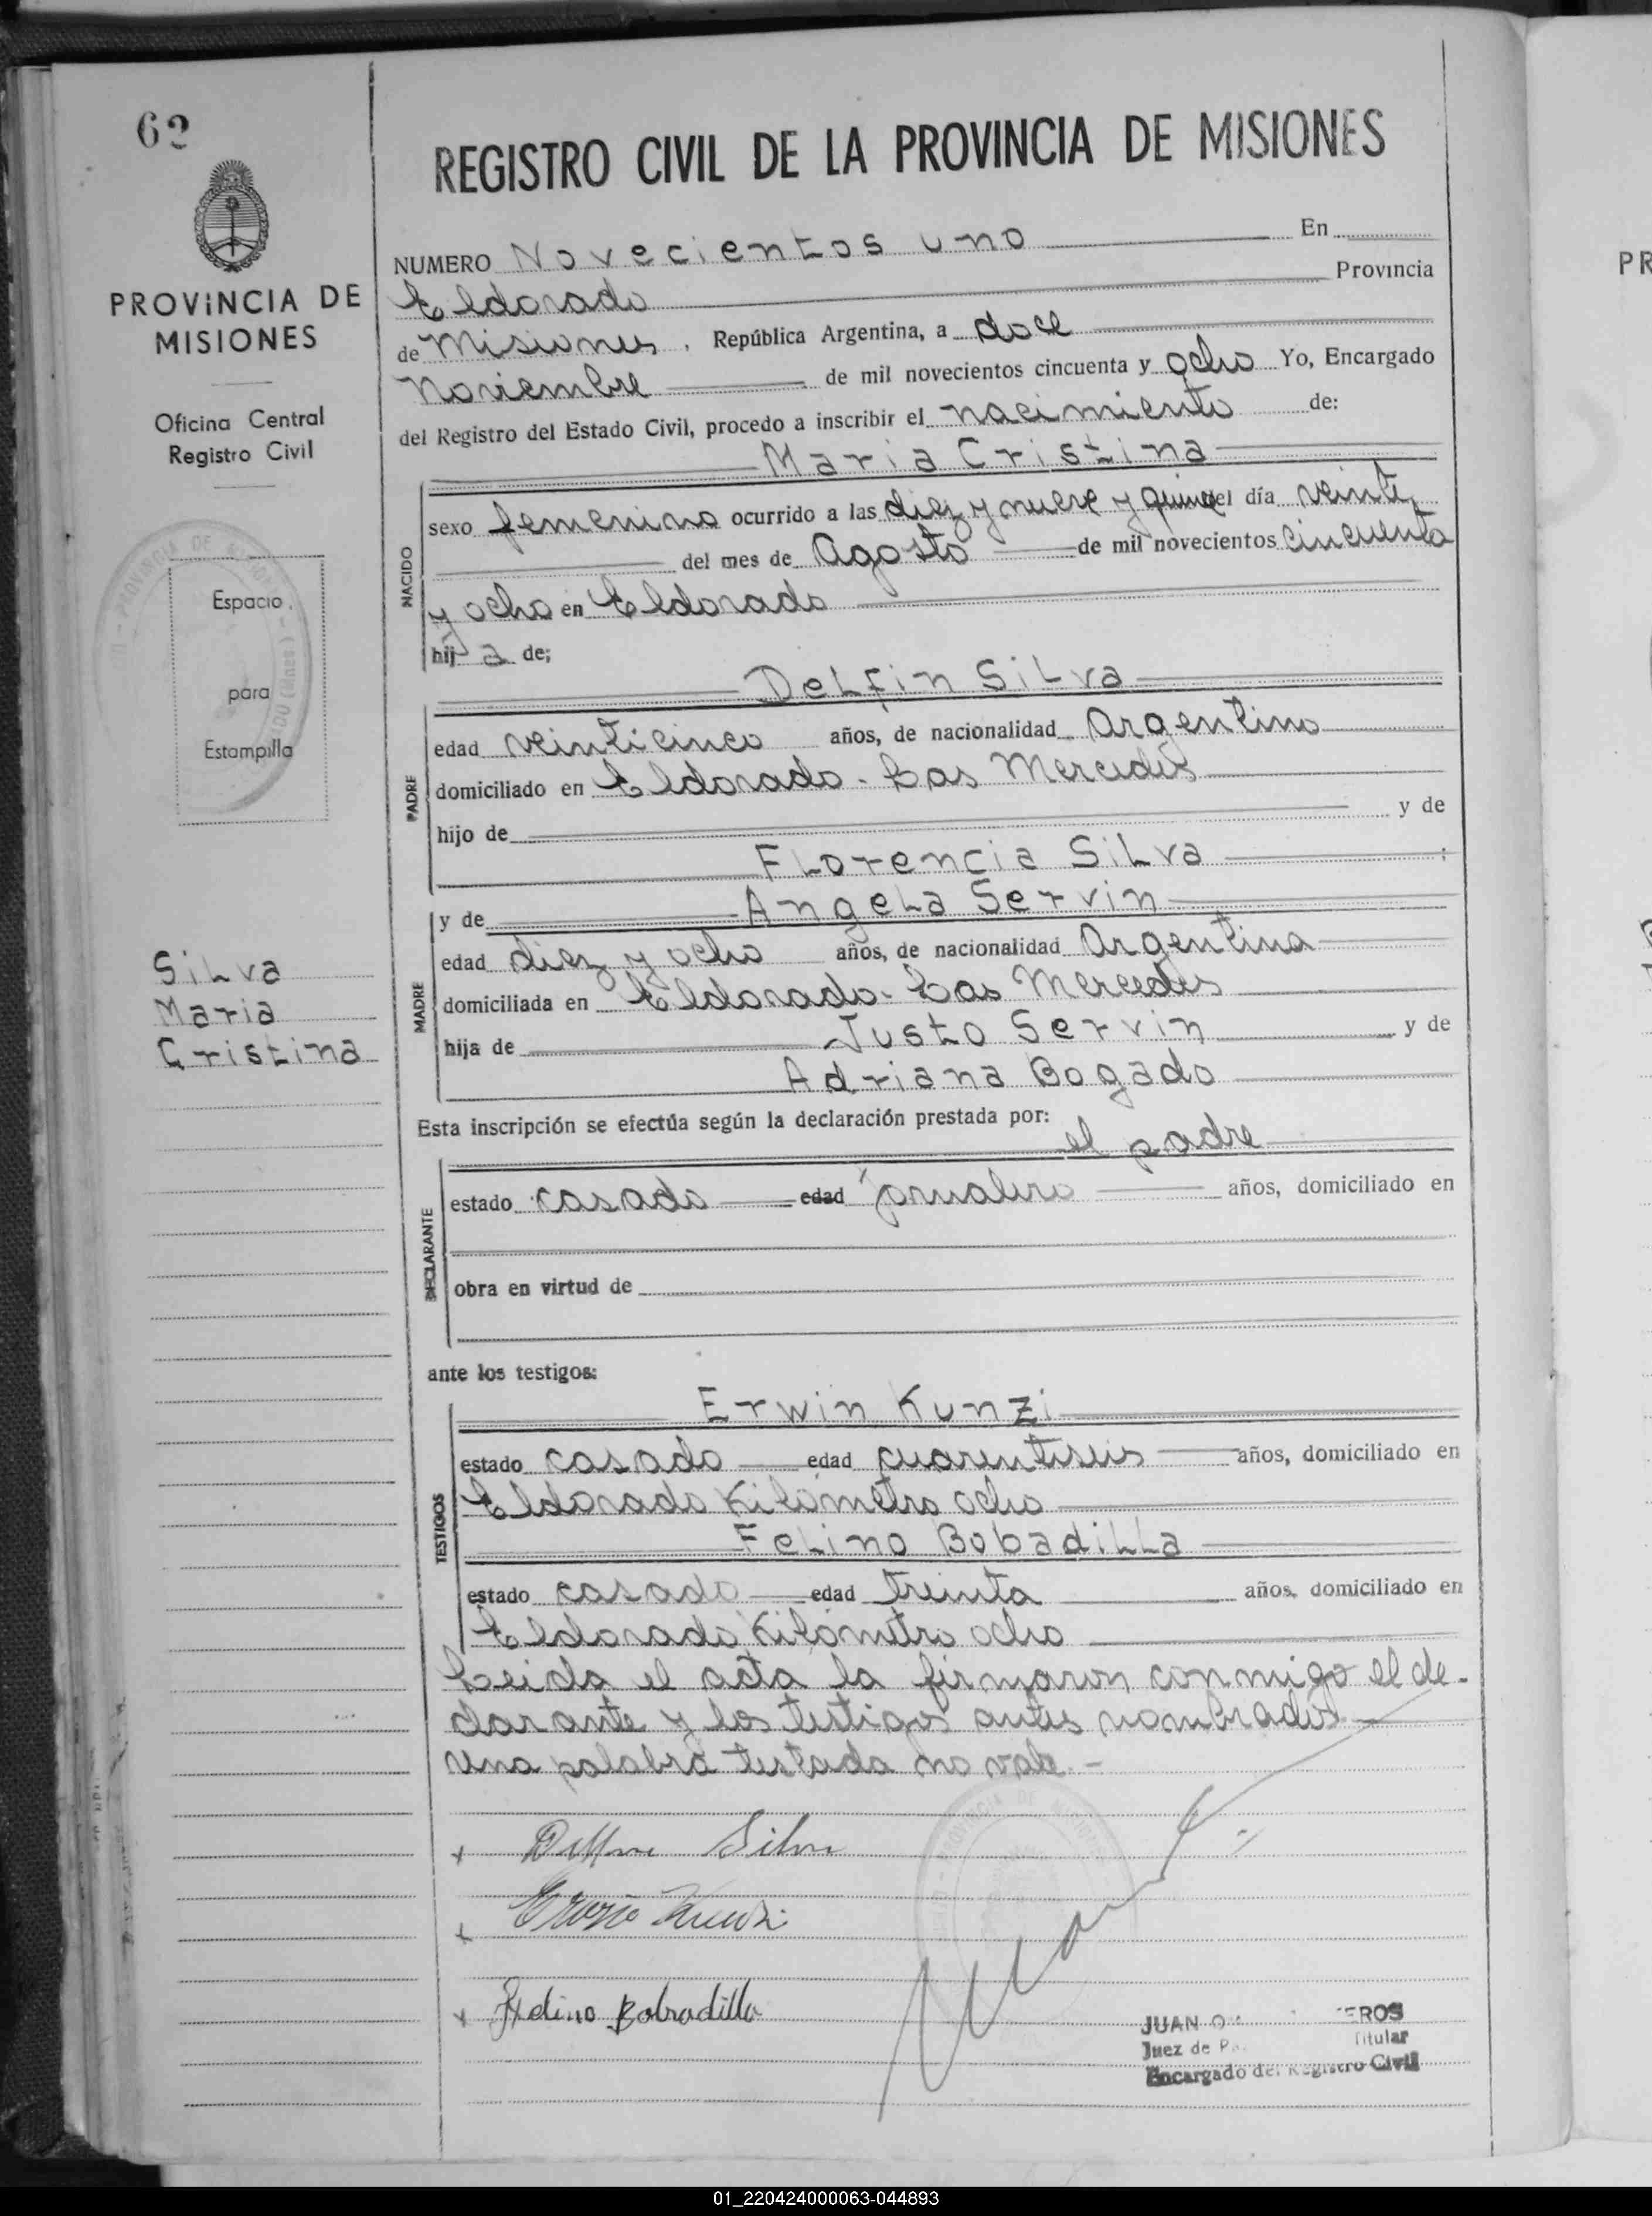 62
REGISTRO CIVIL DE LA PROVINCIA DE MISIONES
PROVINCIA DE
MISIONES
Oficina Central
Registro Civil
Espacio
para
Estampilla
Silva
Maria
Cristina
NUMERO Novecientos uno En
Eldorado Provincia
de Misiones, República Argentina, a doce
Noviembre de mil novecientos cincuenta y ocho Yo, Encargado
del Registro del Estado Civil, procedo a inscribir el nacimiento de:
Maria Cristina
NACIDO
sexo femenino ocurrido a las diez y nueve y quince del día veinte
del mes de Agosto de mil novecientos cincuenta
y ocho en Eldorado
hij a de;
Delfin Silva
PADRE
edad veinticinco años, de nacionalidad Argentino
domiciliado en Eldorado - Las Mercedes
hijo de y de
Florencia Silva ;
y de Angela Servin
MADRE
edad diez y ocho años, de nacionalidad Argentina
domiciliada en Eldorado - Las Mercedes
hija de Justo Servin y de
Adriana Bogado
Esta inscripción se efectúa según la declaración prestada por:
el padre
DECLARANTE
estado casado edad jornalero años, domiciliado en
obra en virtud de
ante los testigos:
Erwin Kunzi
TESTIGOS
estado casado edad cuarentiseis años, domiciliado en
Eldorado Kilómetro ocho
Felino Bobadilla
estado casado edad treinta años, domiciliado en
Eldorado Kilómetro ocho
Leida el acta la firmaron conmigo el de-
clarante y los testigos antes nombrados
Una palabra testada no vale -
Silva
Bobadilla
JUAN
Juez de Titular
Encargado del Registro Civil
PR
01_220424000063-044893